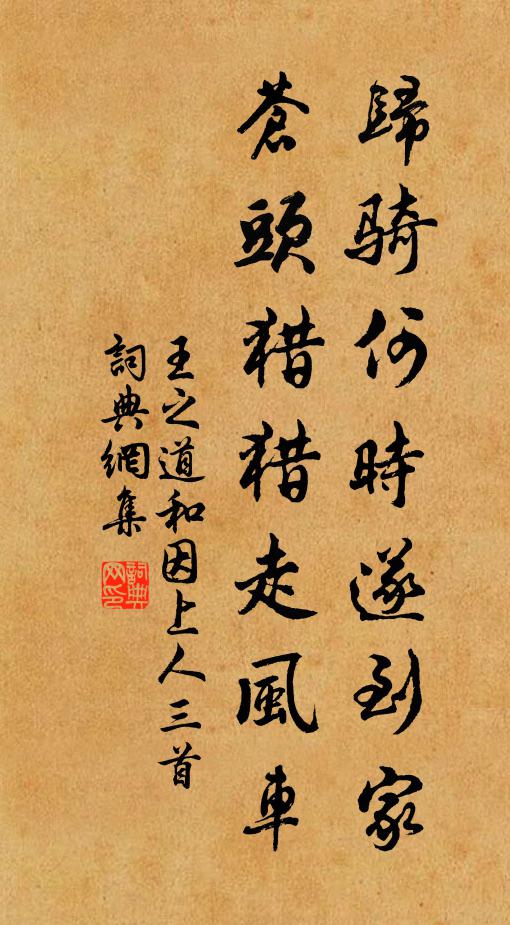 歸騎何時遂到家
蒼頭猎猎走風車
王之道和因上人三首
詞典網集
詞典网印